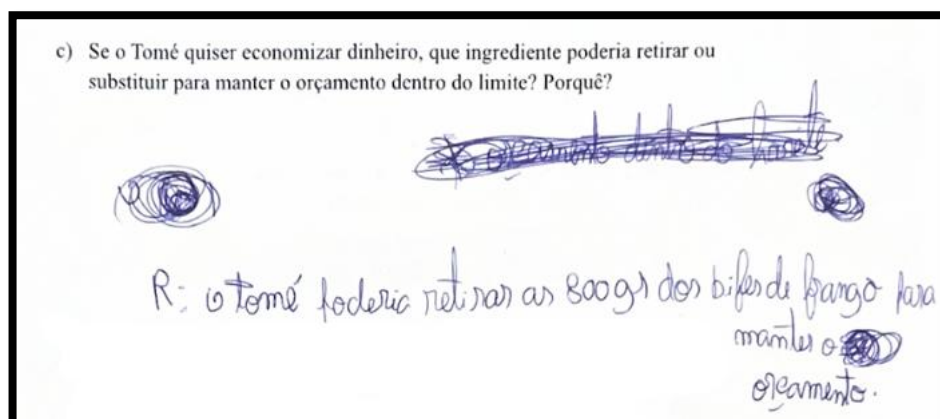 c) Se o Tomé quiser economizar dinheiro, que ingrediente poderia retirar ou
substituir para manter o orçamento dentro do limite? Porquê?
orçamento dentro do
R: o Tomé poderia retirar as 800gs dos bifes de frango para
manter o
orçamento.